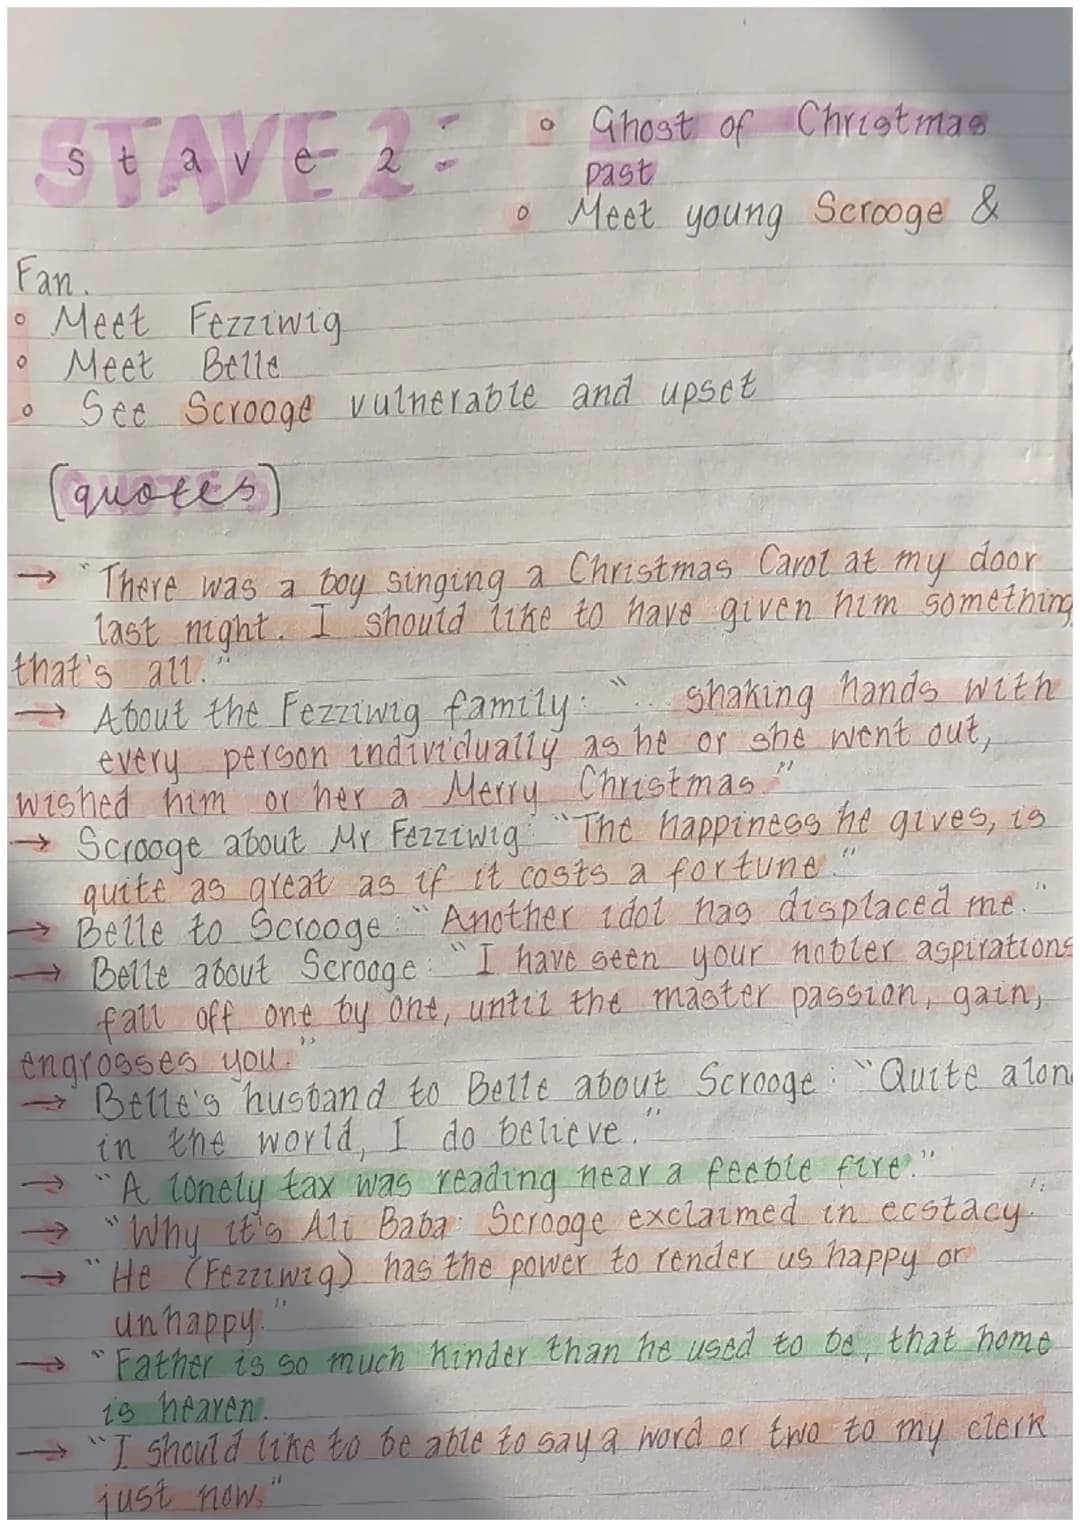 STAVE 2:
stave 2
° Ghost of Christmas
past
° Meet young Scrooge &
Fan.
° Meet Fezziwig
° Meet Belle
° See Scrooge vulnerable and upset
(quotes)
→ "There was a boy singing a Christmas Carol at my door
last night. I should like to have given him something
that's all."
→ About the Fezziwig family: "... shaking hands with
every person individually as he or she went out,
wished him or her a Merry Christmas."
→ Scrooge about Mr Fezziwig: "The happiness he gives, is
quite as great as if it costs a fortune."
→ Belle to Scrooge: "Another idol has displaced me."
→ Belle about Scrooge: "I have seen your nobler aspirations
fall off one by one, until the master passion, gain,
engrosses you."
→ Belle's husband to Belle about Scrooge: "Quite alon
in the world, I do believe."
→ "A lonely tax was reading near a feeble fire."
→ "Why it's Ali Baba: Scrooge exclaimed in ecstacy."
→ "He (Fezziwig) has the power to render us happy or
unhappy."
→ "Father is so much kinder than he used to be, that home
is heaven.
→ "I should like to be able to say a word or two to my clerk
just now."